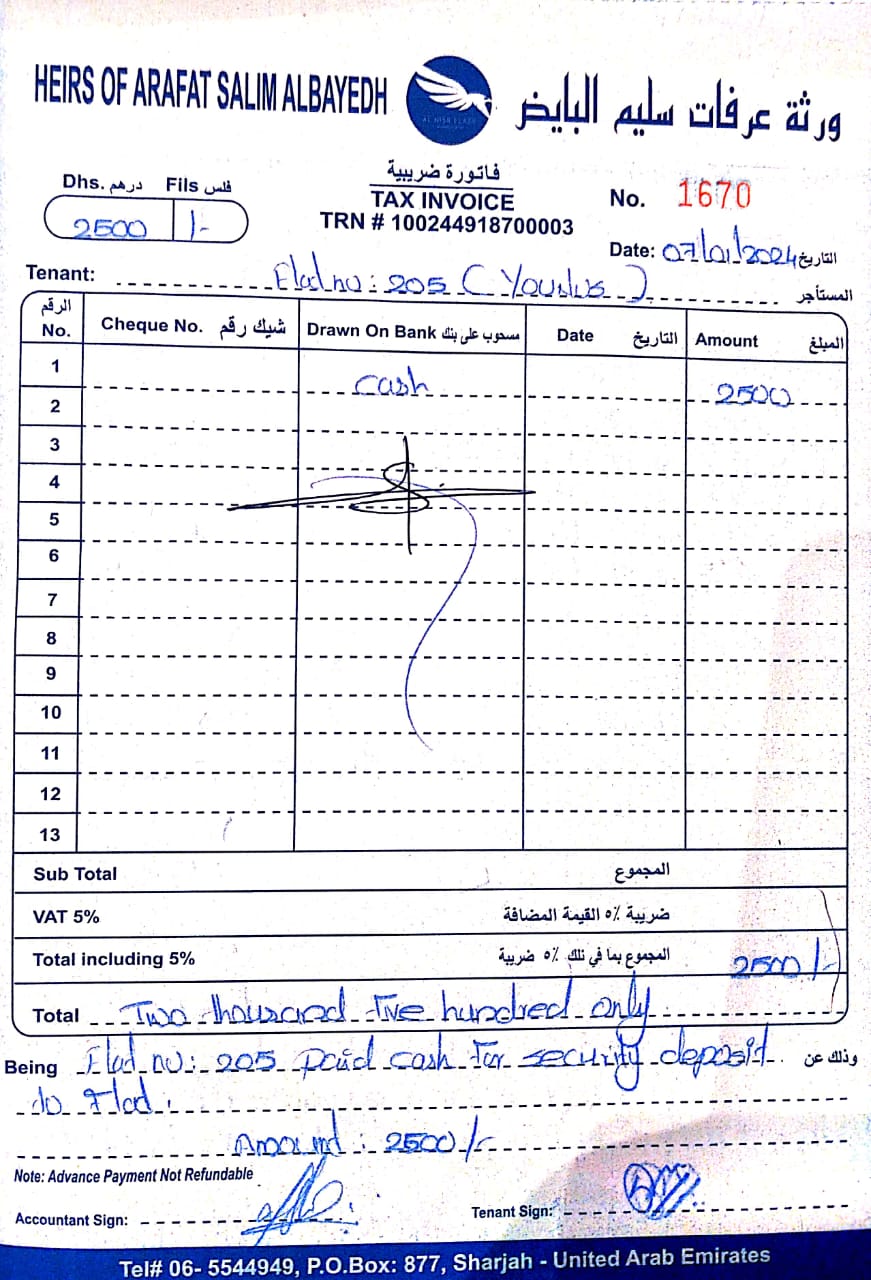 HEIRS OF ARAFAT SALIM ALBAYEDH
ورثة عرفات سليم البايض
Dhs. درهم Fils فلس
2500 /-
فاتورة ضريبية
TAX INVOICE
TRN # 100244918700003
No. 1670
Date: 07/01/2024 التاريخ
Tenant: Flat no: 205 ( Younus ) المستأجر
الرقم No. Cheque No. شيك رقم Drawn On Bank مسحوب على بنك Date التاريخ Amount المبلغ
1 cash 2500
2
3
4
5
6
7
8
9
10
11
12
13
Sub Total المجموع
VAT 5% ضريبة ٥٪ القيمة المضافة
Total including 5% المجموع بما في تلك ٥٪ ضريبة 2500/-
Total Two thousand Five hundred only
Being Flat no: 205 paid cash for security deposit وذلك عن
to Flat.
Amount: 2500/-
Note: Advance Payment Not Refundable
Accountant Sign: Tenant Sign:
Tel# 06- 5544949, P.O.Box: 877, Sharjah - United Arab Emirates